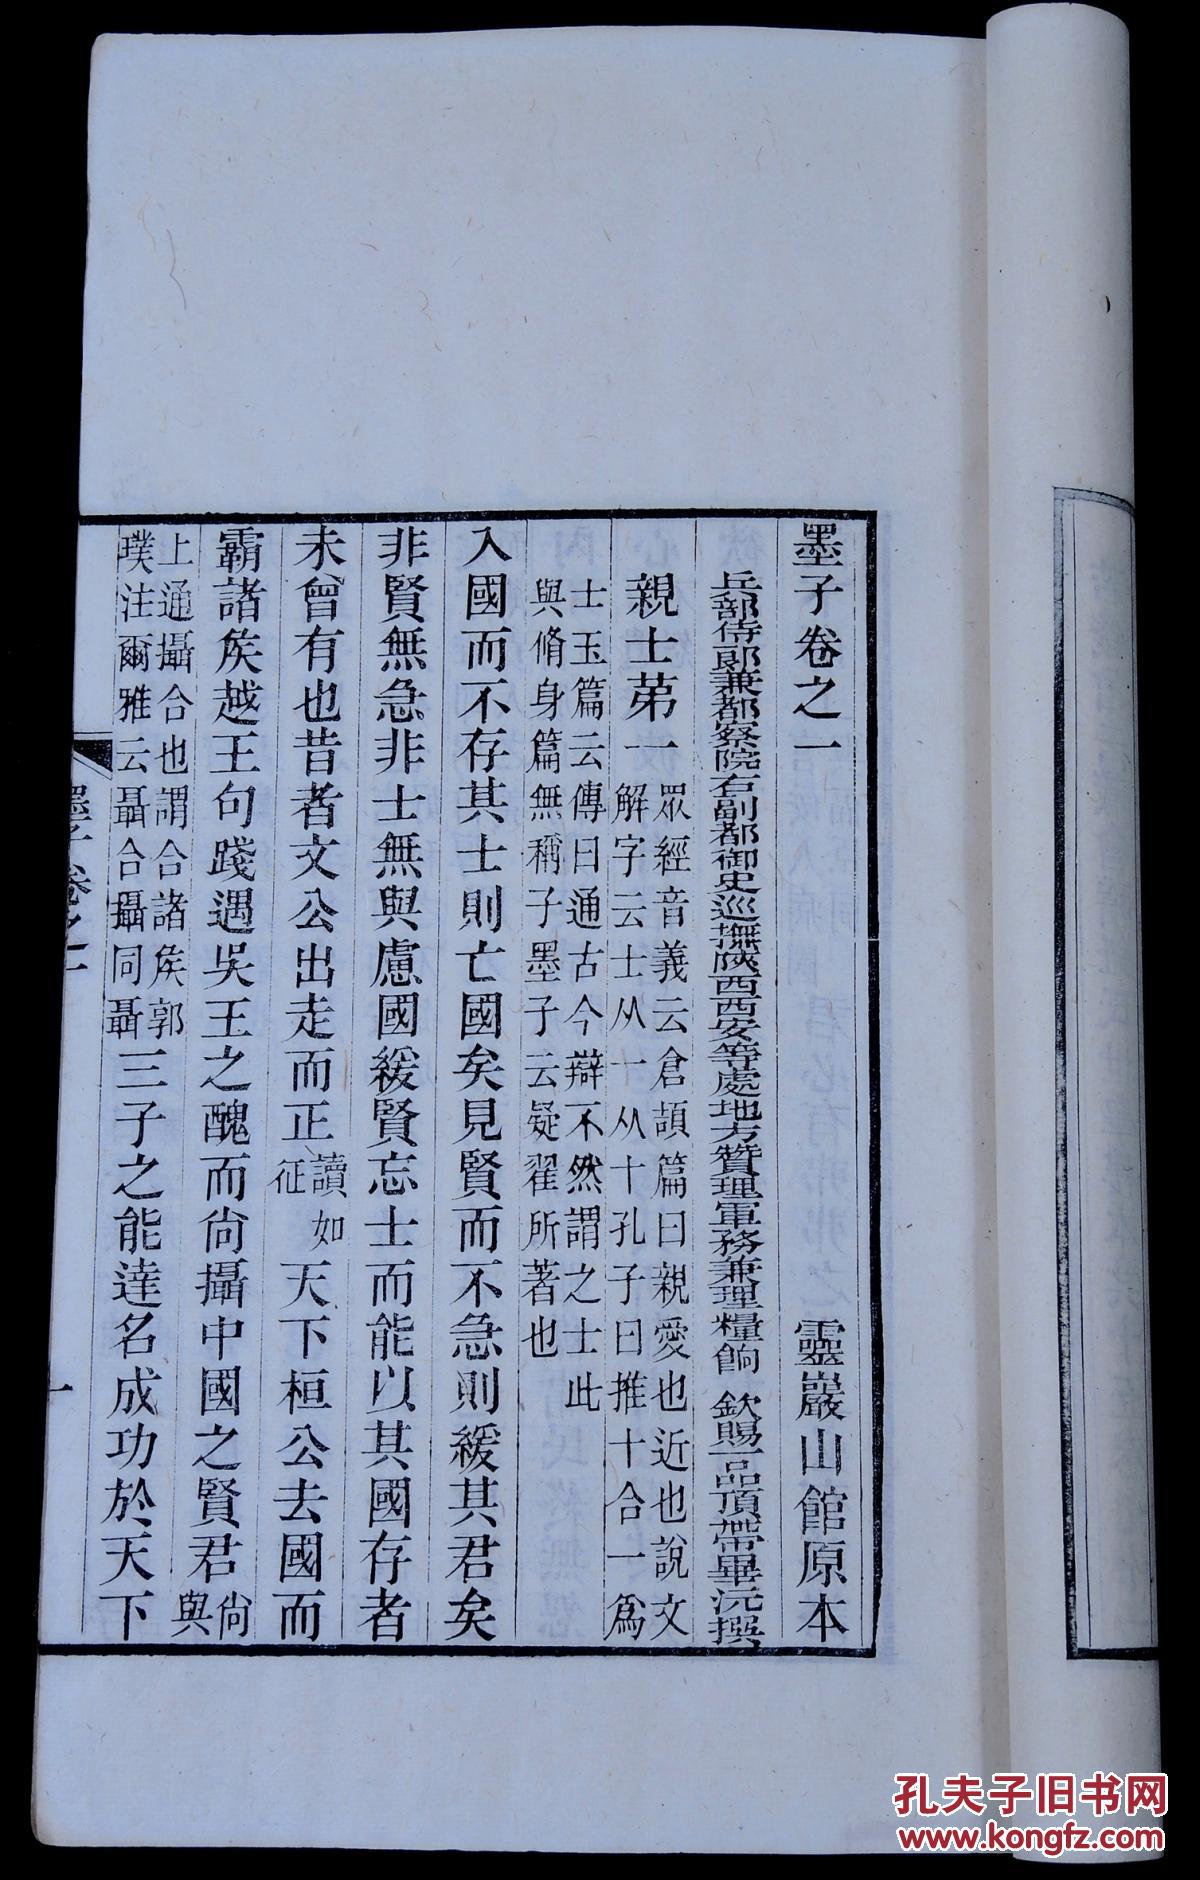 墨子卷之一　靈巖山館原本
兵部侍郎兼都察院右副都御史巡撫陝西西安等處地方贊理軍務兼理糧餉　欽賜一品頂帶畢沅撰
親士苐一　眾經音義云倉頡篇曰親愛也近也說文
解字云士从一从十孔子曰推十合一爲
士玉篇云傳曰通古今辯不然謂之士此
與脩身篇無稱子墨子云疑翟所著也
入國而不存其士則亡國矣見賢而不急則緩其君矣
非賢無急非士無與慮國緩賢忘士而能以其國存者
未曾有也昔者文公出走而正讀如征天下桓公去國而
霸諸矦越王句踐遇吳王之醜而尙攝中國之賢君尙與
上通攝合也謂合諸矦郭璞注爾雅云聶合攝同聶三子之能達名成功於天下
墨子卷之一
一
孔夫子旧书网
www.kongfz.com